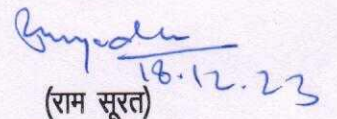 18.12.23
(राम सूरत)